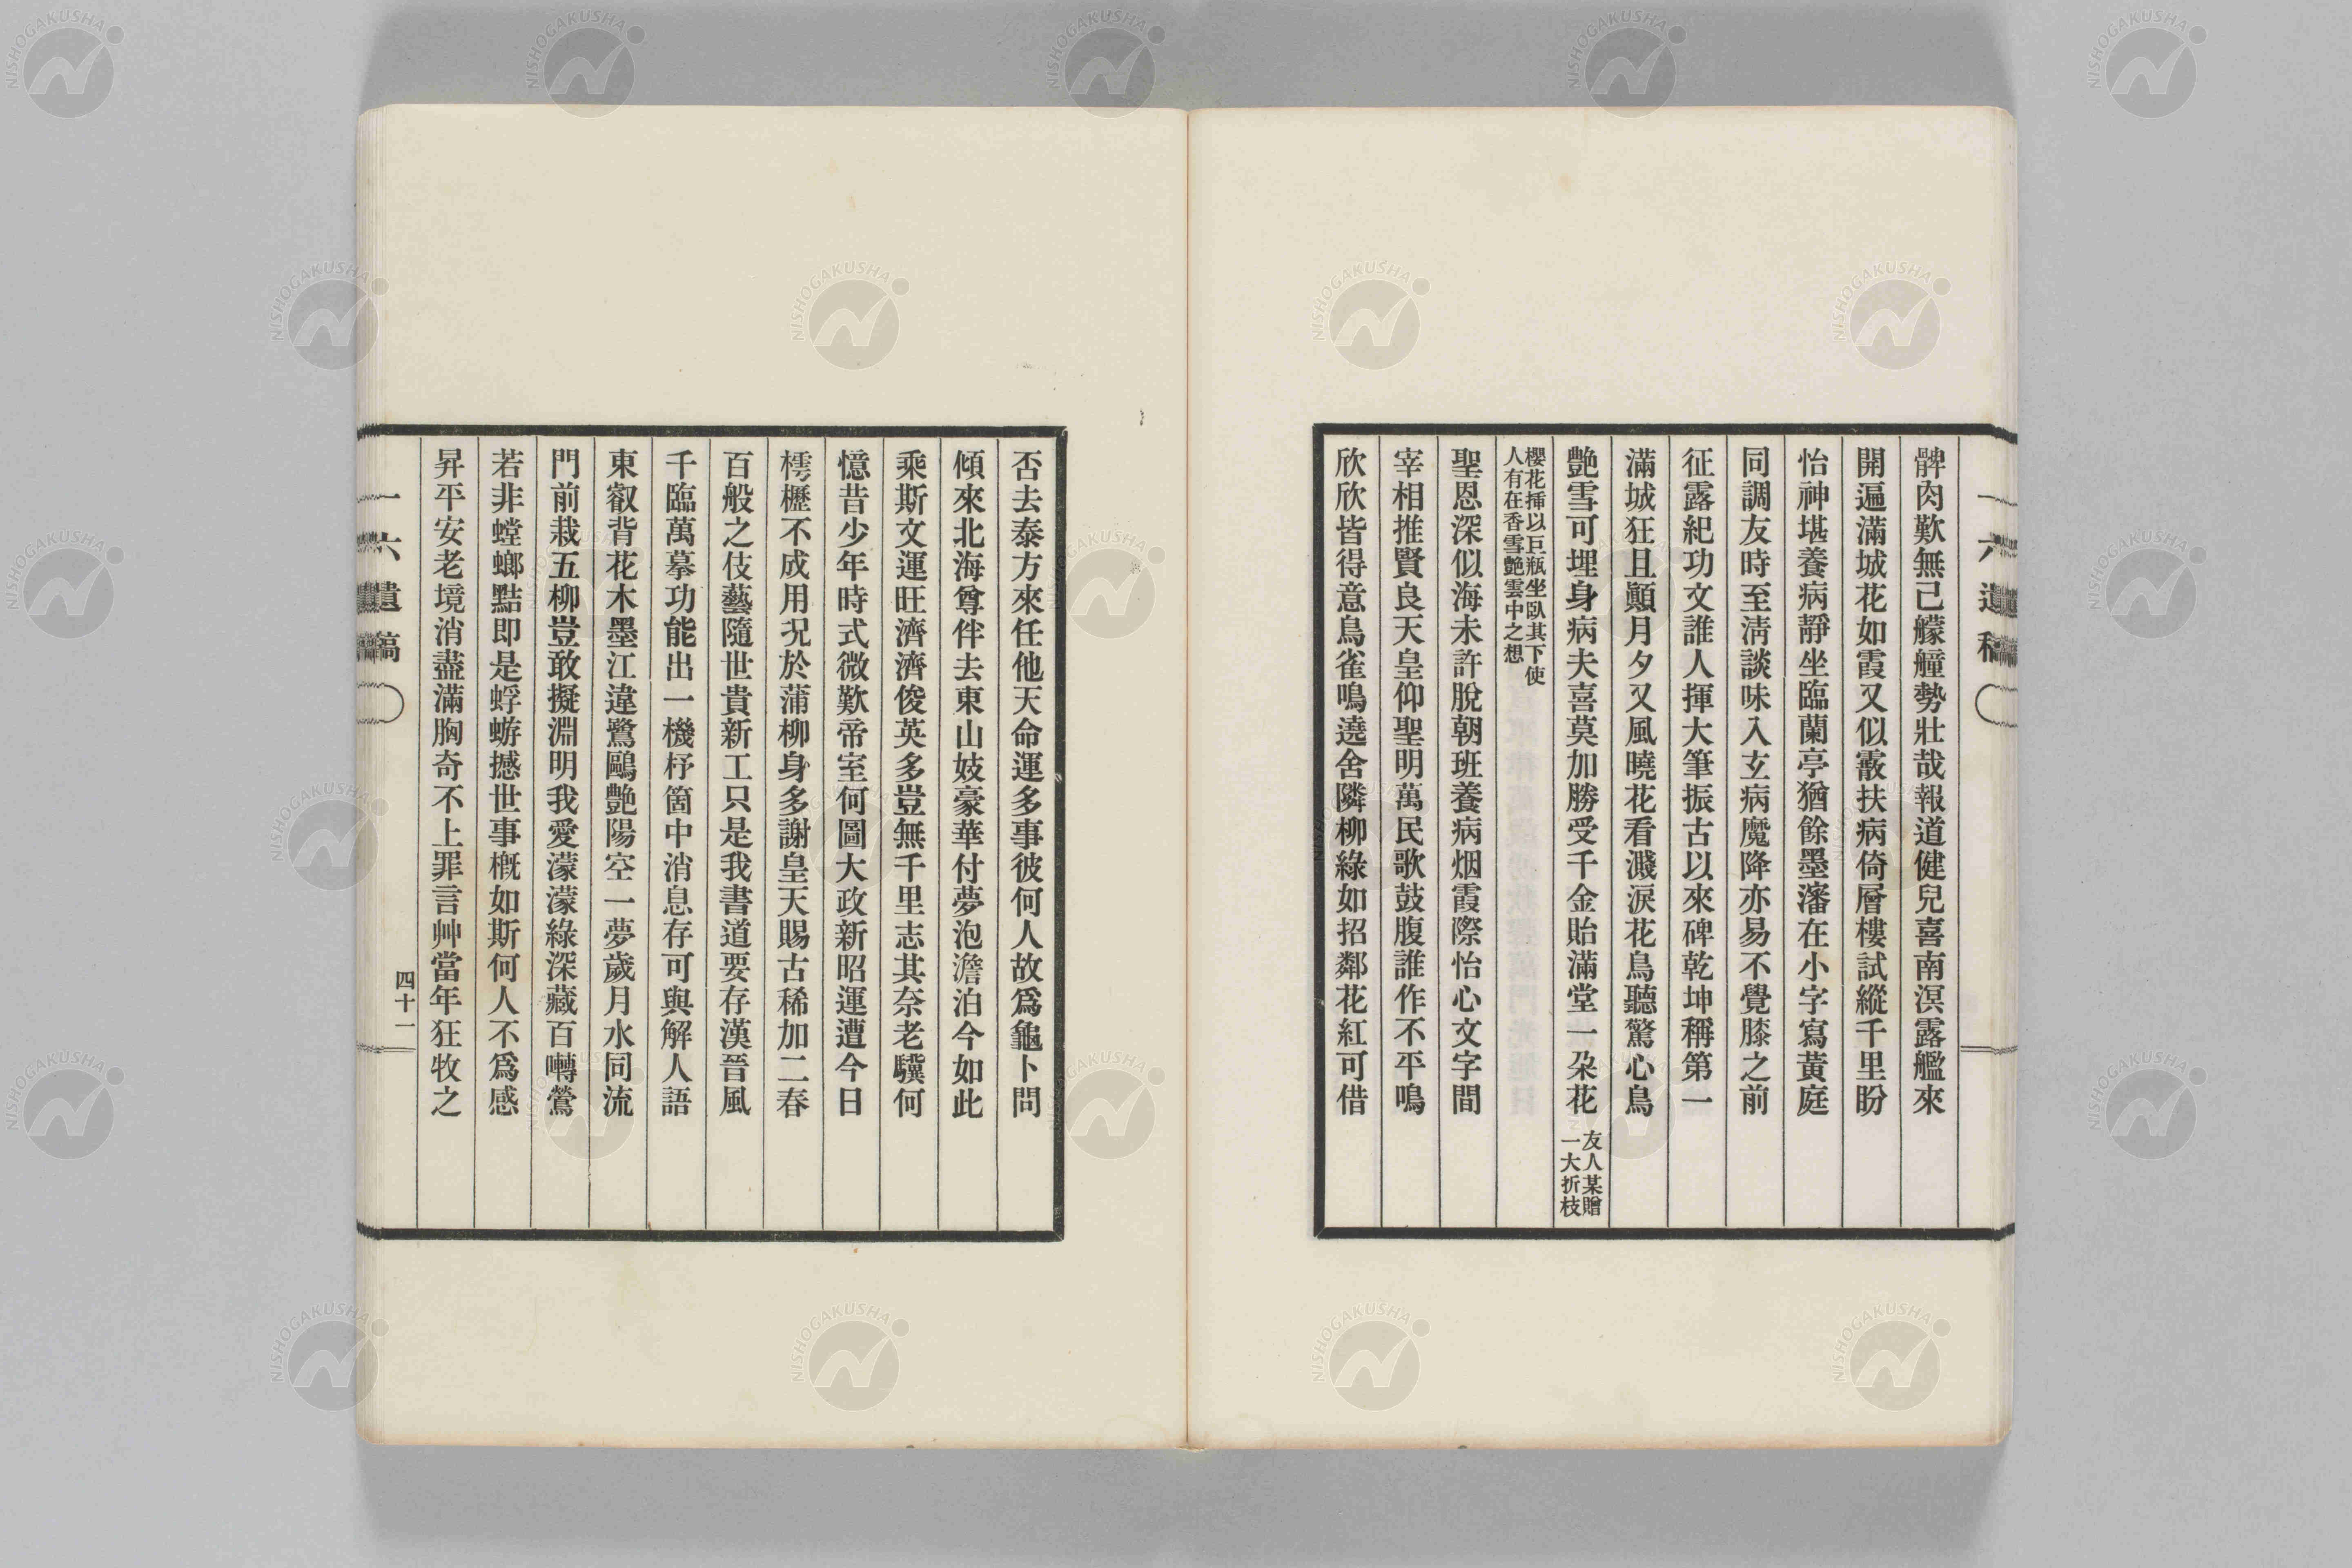 髀肉歎無已艨艟勢壯哉報道健兒喜南溟露艦來
開遍滿城花如霞又似霰扶病倚層樓試縱千里盼
怡神堪養病靜坐臨蘭亭猶餘墨瀋在小字寫黃庭
同調友時至淸談味入玄病魔降亦易不覺膝之前
征露紀功文誰人揮大筆振古以來碑乾坤稱第一
滿城狂且顚月夕又風曉花看濺淚花鳥聽驚心鳥
艷雪可埋身病夫喜莫加勝受千金貽滿堂一朶花
友人某贈
一大折枝
櫻花揷以巨瓶坐臥其下使
人有在香雪艷雲中之想
聖恩深似海未許脫朝班養病烟霞際怡心文字間
宰相推賢良天皇仰聖明萬民歌鼓腹誰作不平鳴
欣欣皆得意鳥雀鳴遶舍隣柳綠如招鄰花紅可借
一六遺稿
否去泰方來任他天命運多事彼何人故爲龜卜問
傾來北海尊伴去東山妓豪華付夢泡澹泊今如此
乘斯文運旺濟濟俊英多豈無千里志其奈老驥何
憶昔少年時式微歎帝室何圖大政新昭運遭今日
樗櫪不成用況於蒲柳身多謝皇天賜古稀加二春
百般之伎藝隨世貴新工只是我書道要存漢晉風
千臨萬摹功能出一機杼箇中消息存可與解人語
東叡背花木墨江違鷺鷗艷陽空一夢歲月水同流
門前栽五柳豈敢擬淵明我愛濛濛綠深藏百囀鶯
若非螳螂黠即是蜉蝣撼世事槪如斯何人不爲感
昇平安老境消盡滿胸奇不上罪言艸當年狂牧之
一六遺稿
四十一
NISHOGAKUSHA